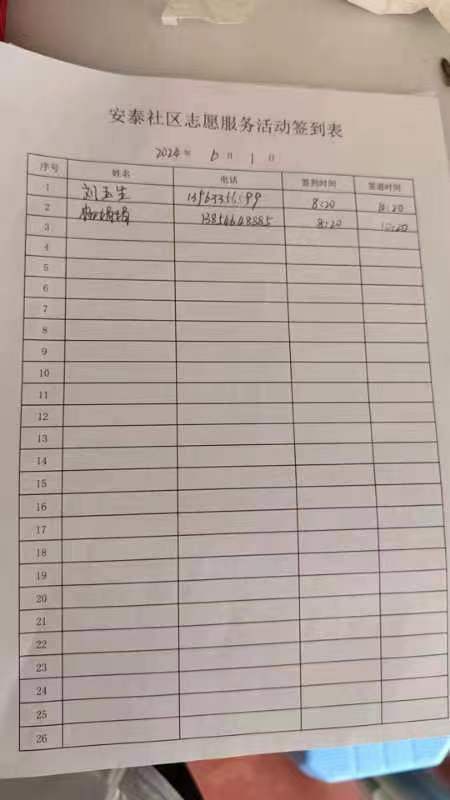 安泰社区志愿服务活动签到表
2024年 6月 1日
序号 姓名 电话 签到时间 签退时间
1 刘玉生 8:20
2 8:20
3
4
5
6
7
8
9
10
11
12
13
14
15
16
17
18
19
20
21
22
23
24
25
26